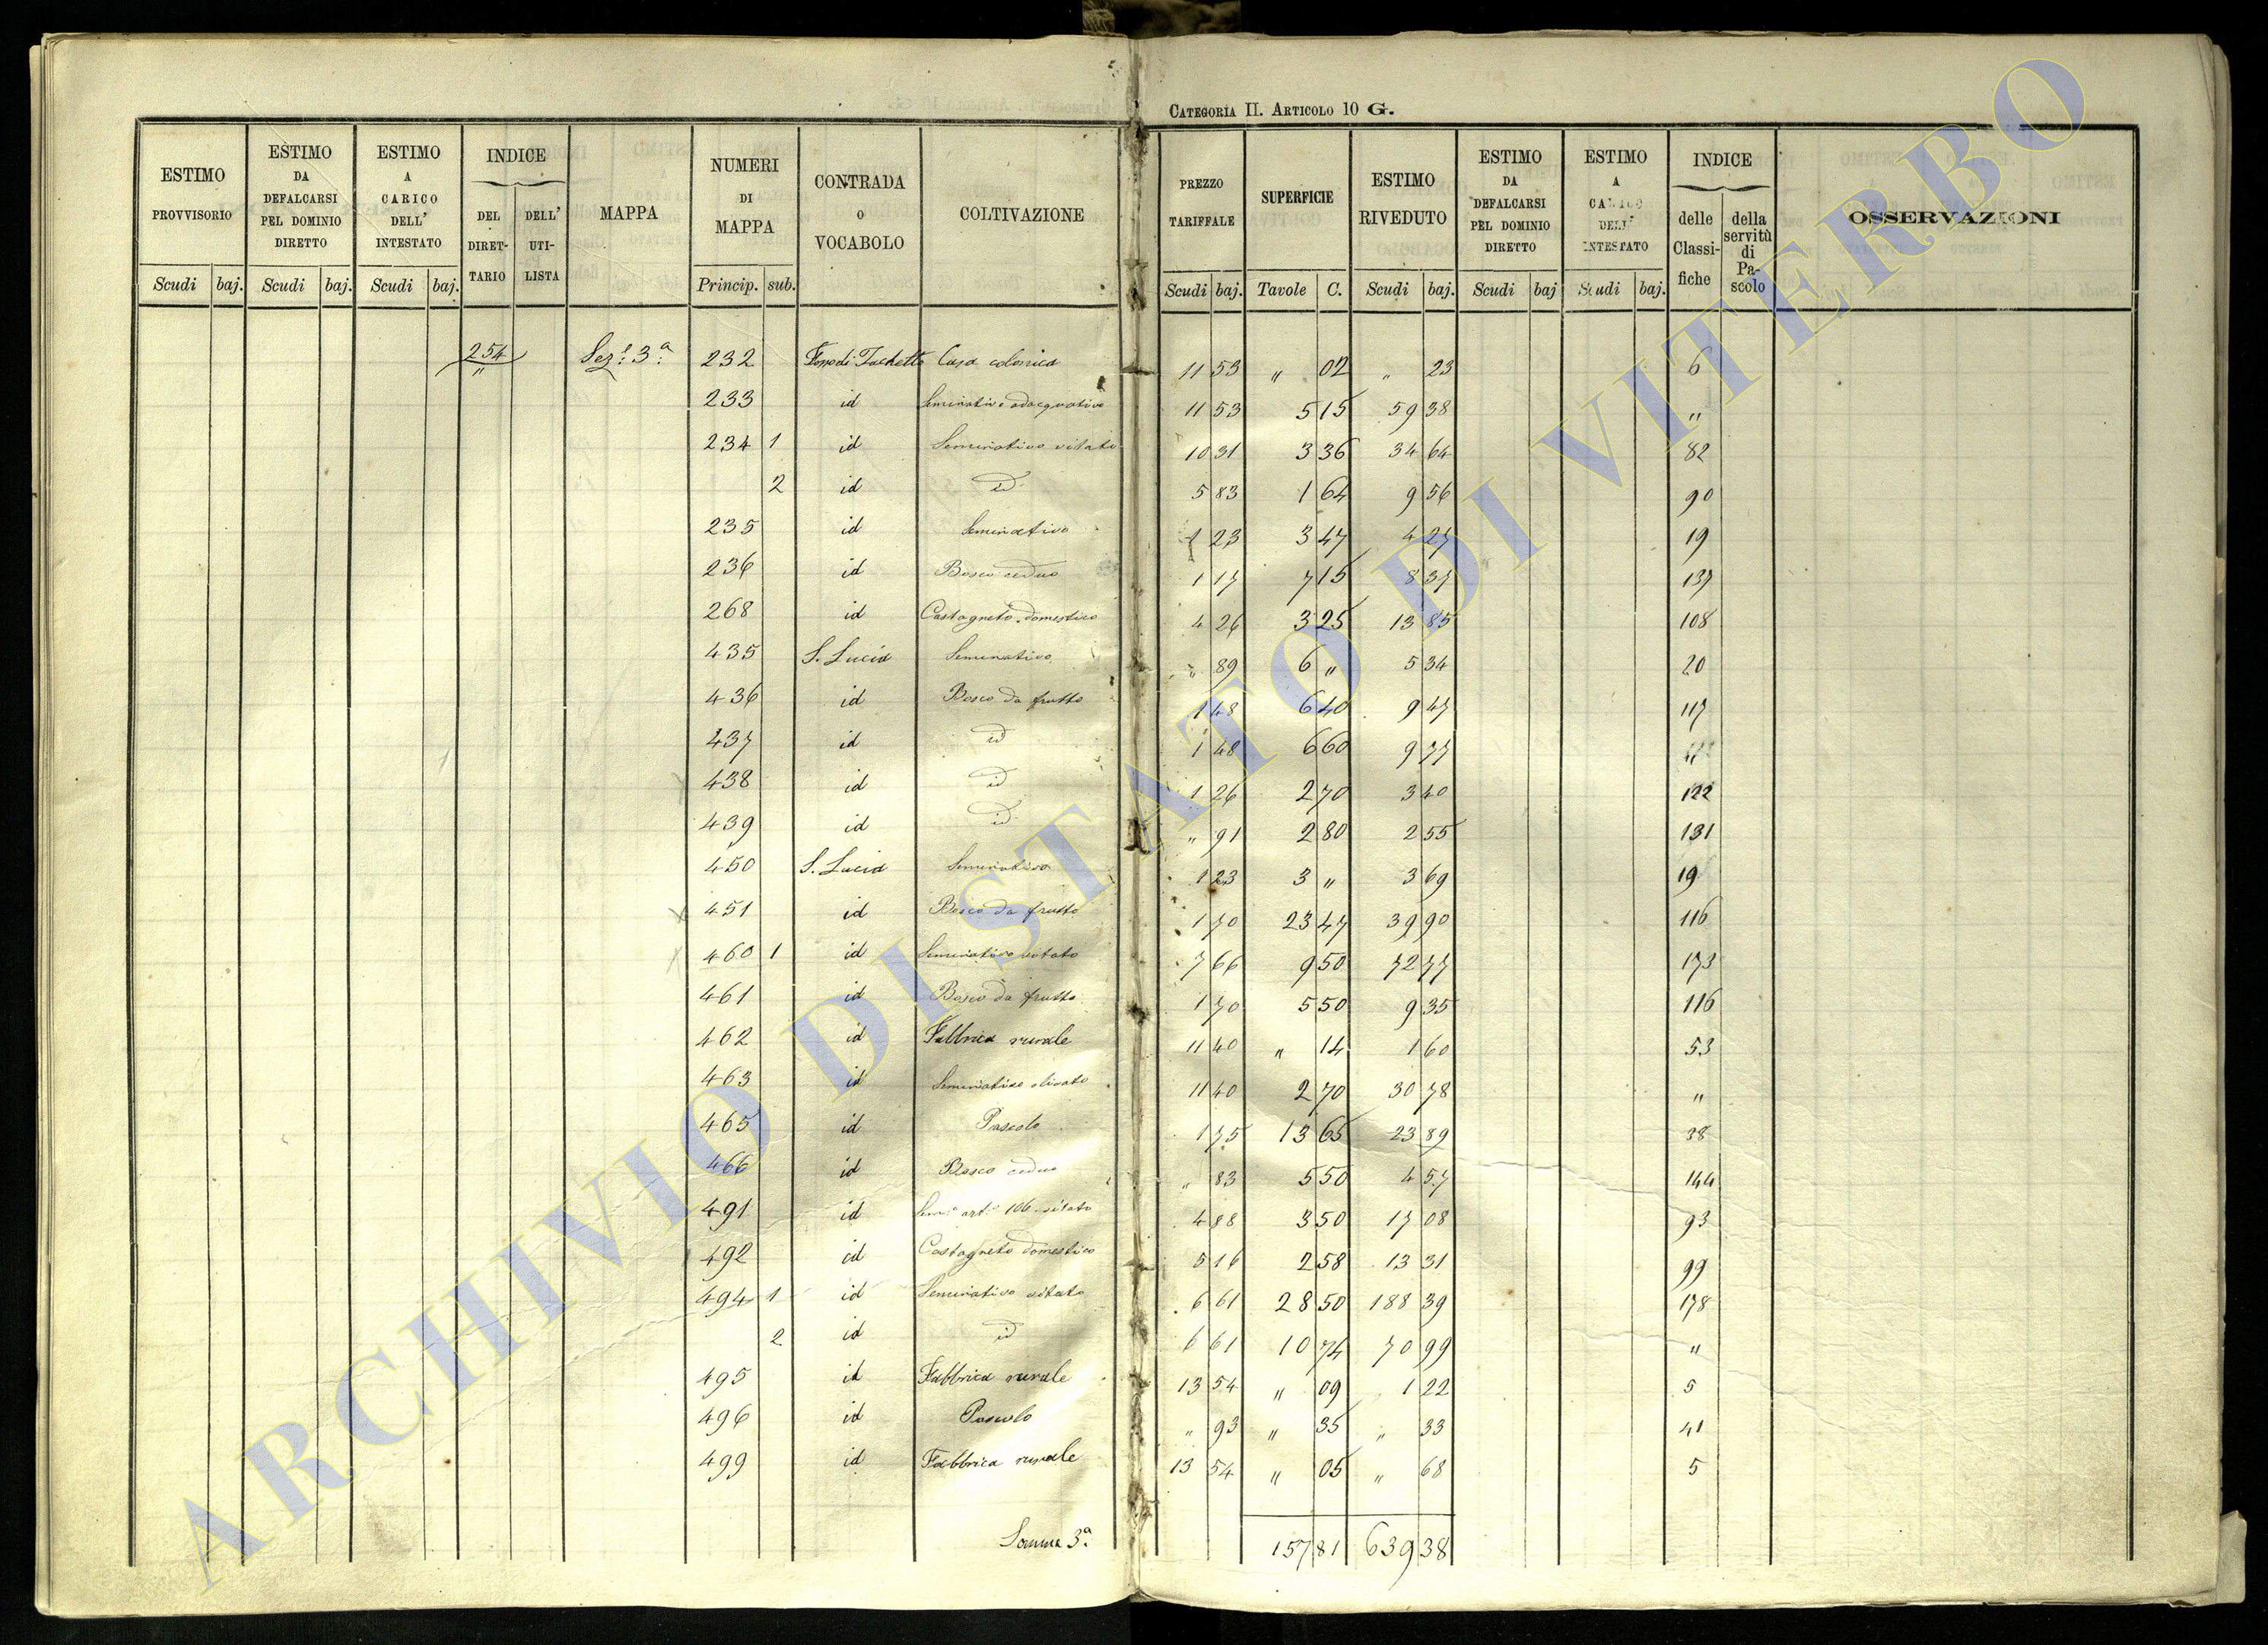 CATEGORIA II. ARTICOLO 10 G.
ESTIMO PROVVISORIO Scudi baj.
ESTIMO DA DEFALCARSI PEL DOMINIO DIRETTO Scudi baj.
ESTIMO A CARICO DELL' INTESTATO Scudi baj.
INDICE DEL DIRETTARIO DELL' UTILISTA
MAPPA
NUMERI DI MAPPA Princip. sub.
CONTRADA O VOCABOLO
COLTIVAZIONE
PREZZO TARIFFALE Scudi baj.
SUPERFICIE Tavole C.
ESTIMO RIVEDUTO Scudi baj.
ESTIMO DA DEFALCARSI PEL DOMINIO DIRETTO Scudi baj
ESTIMO A CARICO DELL' INTESTATO Scudi baj.
INDICE delle Classifiche della servitù di Pascolo
OSSERVAZIONI
254 " Sez.e 3a 232 Casa colonica 11 53 " 02 " 23 6
233 id Seminativo adacquativo 11 53 5 15 59 38 "
234 1 id Seminativo vitato 10 31 3 36 34 64 82
2 id id 5 83 1 64 9 56 90
235 id Seminativo 1 23 3 47 4 27 19
236 id Bosco ceduo 1 17 7 15 8 37 137
268 id Castagneto domestico 4 26 3 25 13 85 108
435 S. Lucia Seminativo " 89 6 " 5 34 20
436 id Bosco da frutto 1 48 6 40 9 47 117
437 id id 1 48 6 60 9 77
438 id id 1 26 2 70 3 40 122
439 id id " 91 2 80 2 55 131
450 S. Lucia Seminativo 1 23 3 " 3 69 19
451 id Bosco da frutto 1 70 23 47 39 90 116
460 1 id Seminativo vitato 7 66 9 50 72 77 173
461 id Bosco da frutto 1 70 5 50 9 35 116
462 id Fabbrica rurale 11 40 " 14 1 60 53
463 id Seminativo olivato 11 40 2 70 30 78 "
465 id Pascolo 1 75 13 65 23 89 38
466 id Bosco ceduo " 83 5 50 4 57 144
491 id Sem.o art.o 106 vitato 4 88 3 50 17 08 93
492 id Castagneto domestico 5 16 2 58 13 31 99
494 1 id Seminativo vitato 6 61 28 50 188 39 178
2 id id 6 61 10 74 70 99 "
495 id Fabbrica rurale 13 54 " 09 1 22 5
496 id Pascolo " 93 " 35 " 33 41
499 id Fabbrica rurale 13 54 " 05 " 68 5
Somma 3a 157 81 639 38
ARCHIVIO DI STATO DI VITERBO